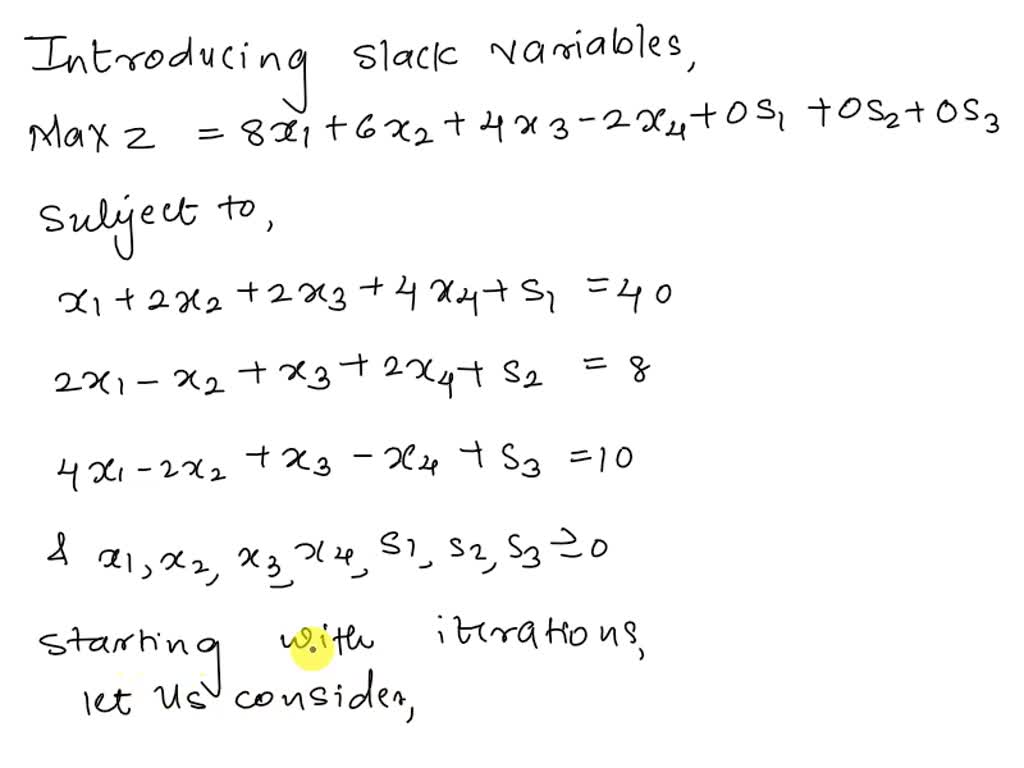 Introducing slack variables,
Max z = 8x₁ + 6x₂ + 4x₃ - 2x₄ + 0S₁ + 0S₂ + 0S₃
Subject to,
x₁ + 2x₂ + 2x₃ + 4x₄ + S₁ = 40
2x₁ - x₂ + x₃ + 2x₄ + S₂ = 8
4x₁ - 2x₂ + x₃ - x₄ + S₃ = 10
& x₁, x₂, x₃, x₄, S₁, S₂, S₃ ≥ 0
starting with iterations,
let us consider,